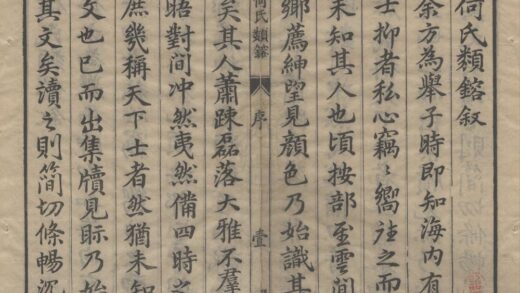 何氏類鎔叙
余方為舉子時即知海内有
士抑者私心竊〻嚮往之而
未知其人也頃按部至雲間
鄉薦紳望見顏色乃始識其
何氏類鎔 序 壹
矣其人蕭踈磊落大雅不羣
晤對間冲然夷然備四時之
庶幾稱天下士者然猶未知
文也已而出集牘見眎乃始
其文矣讀之則簡切條暢沉